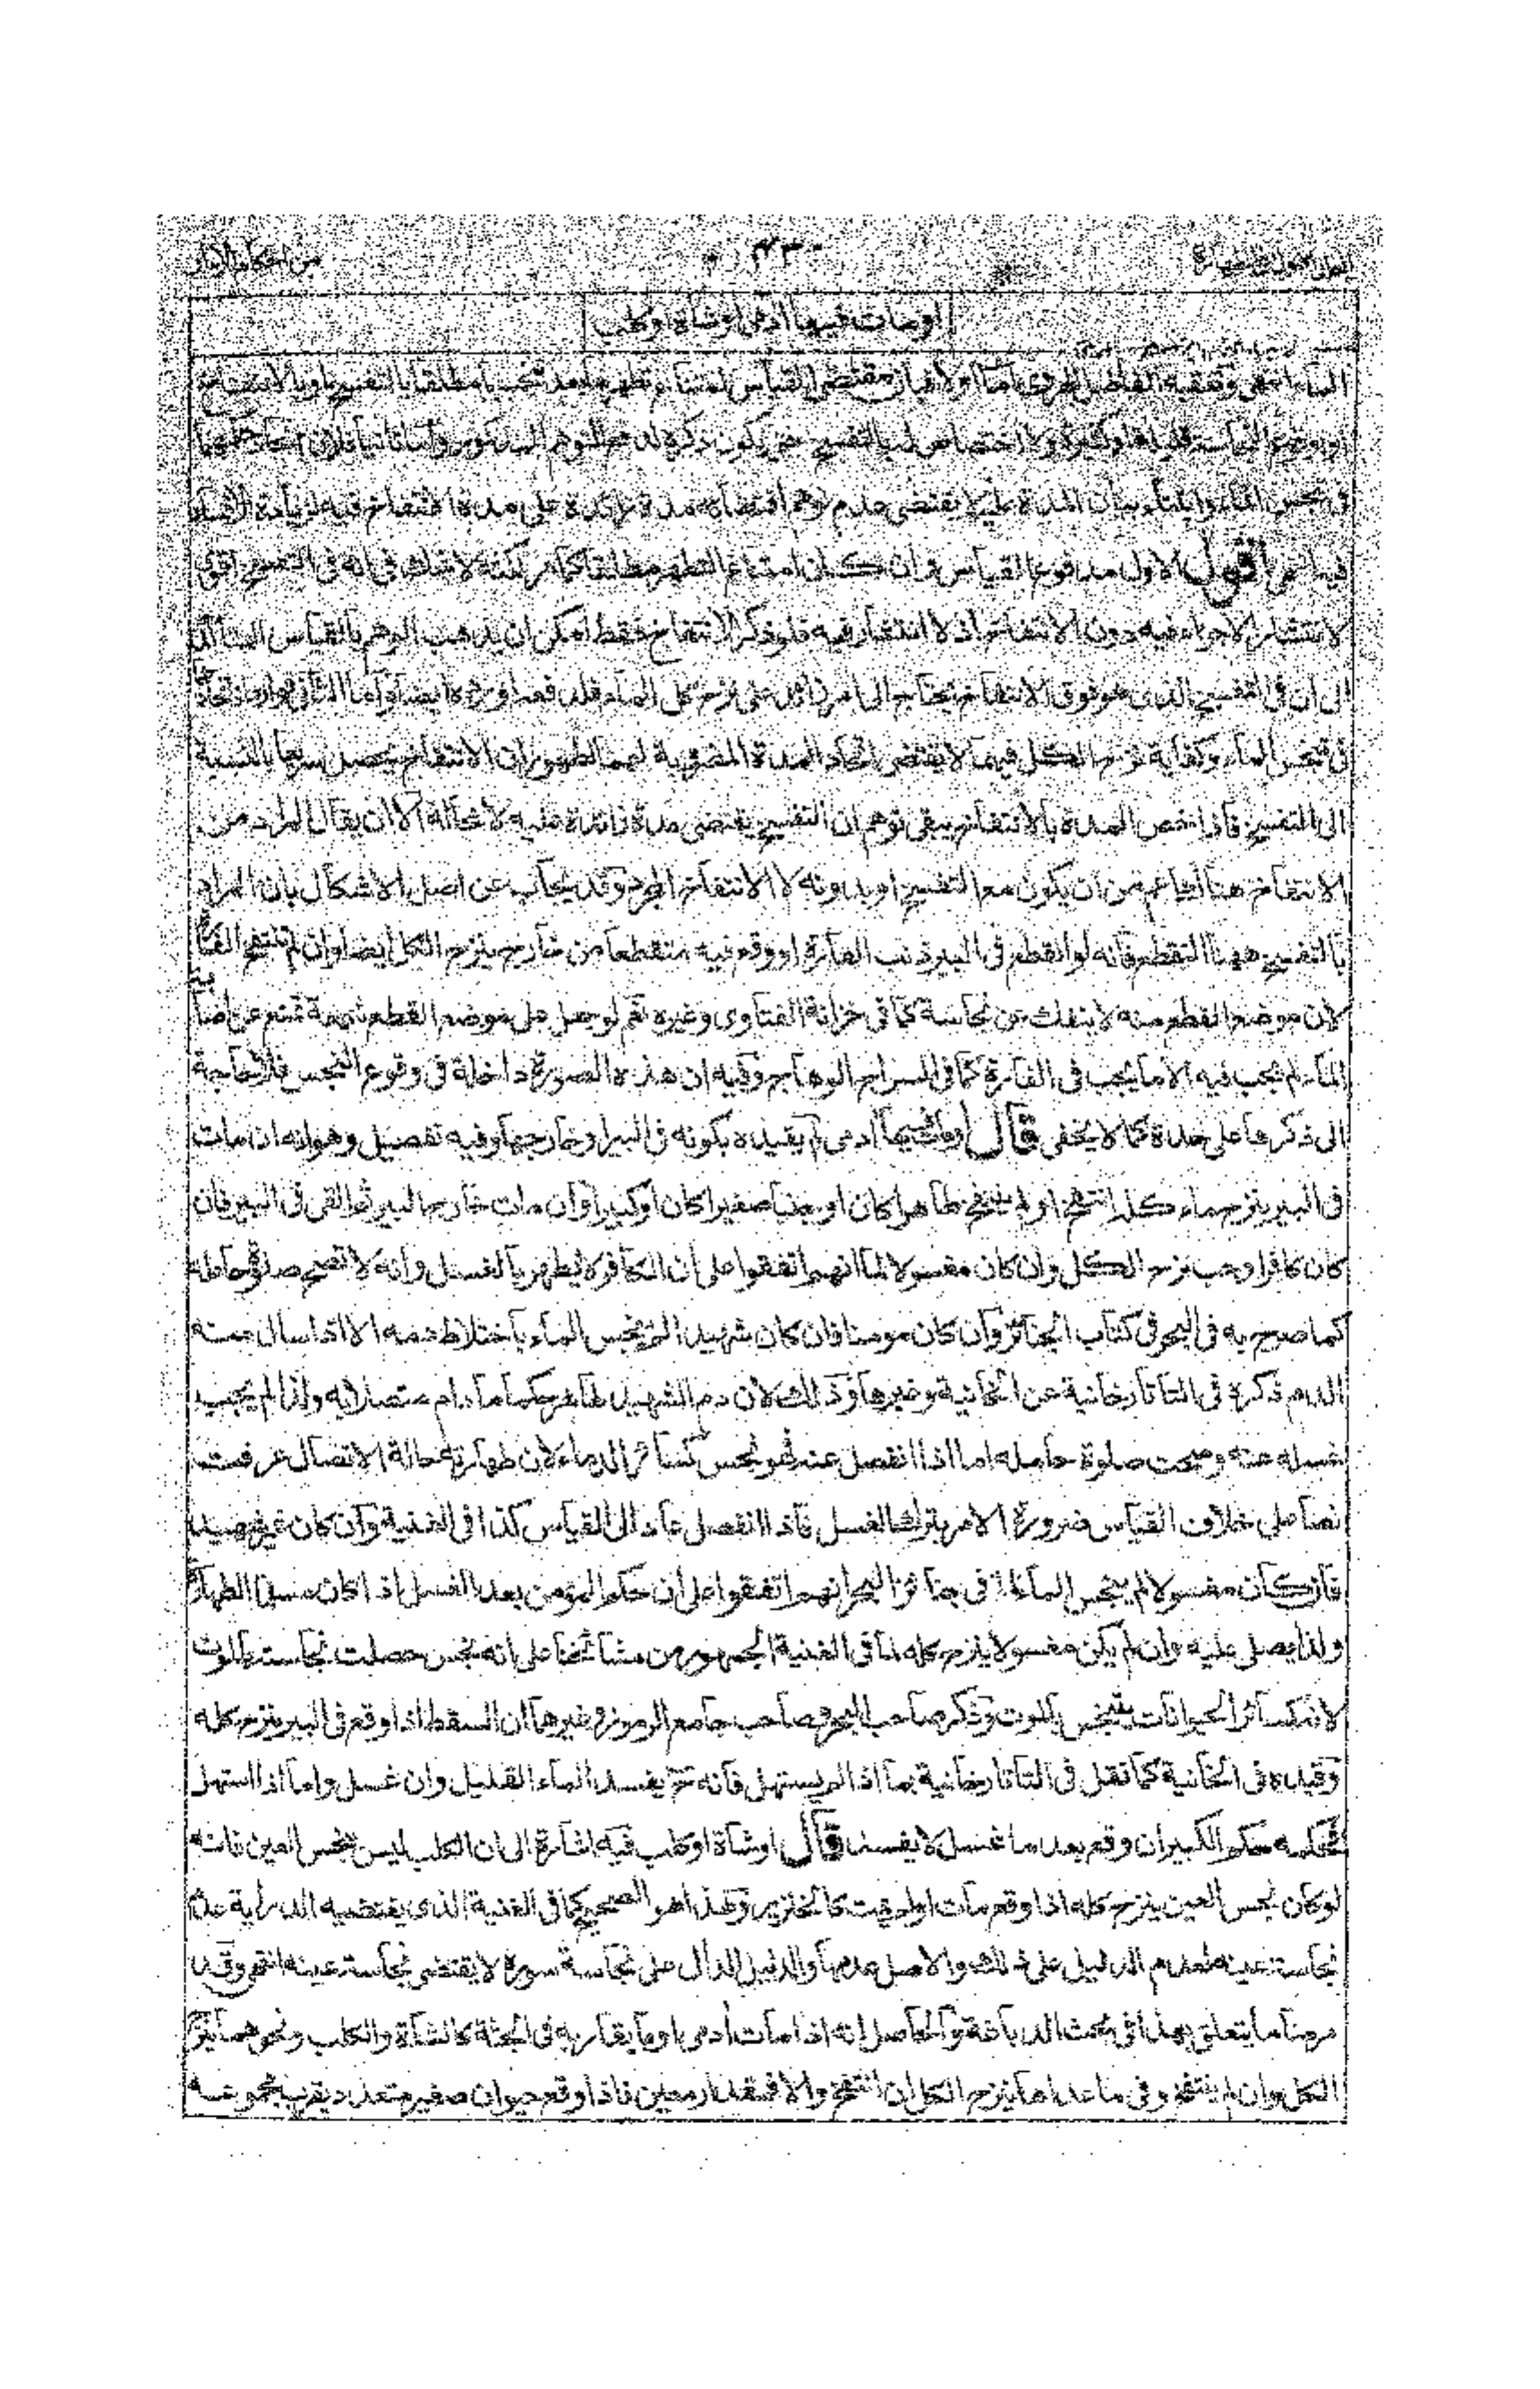 او مات فيها آدمى او شاة او كلب
الماء انتهى وتعقبه الفاضل الهروى اما اولا فبان مقتضى القياس امتناع تطهرها بعد تنجسها مطلقا بالتفسخ او بالانتفاخ
او بوقوع النجاسة قليلها وكثيرها ولا اختصاص له بالتفسخ حتى يكون ذكره لدفع التوهم المذكور واما ثانيا فلان
فى تنجس الماء وابتناء بيان المدة عليه لا يقتضى عدم توهم اقتضائه مدة زائدة على مدة الانتفاخ فيه لزيادة الافساد
فيه انتهى اقول الاول مدفوع القياس وان كان امتناع التطهر مطلقا كما مر لكنه لا شك فى انه فى التفسخ اقوى
لانتشار الاجزاء فيه دون الانتفاخ اذ لا انتشار فيه فلو ذكر الانتفاخ فقط لامكن ان يذهب الوهم بالقياس
الى ان فى التفسخ الذى هو فوق الانتفاخ يحتاج الى امر زائد على نزح كل الماء فلدفعه اورده ايضا واما الثانى فهو ان
فى تنجس الماء وكفاية نزح الكل فيهما لا يقتضى اتحاد المدة المضروبة لهما لظهور ان الانتفاخ يحصل سريعا بالنسبة
الى التفسخ فاذا خص المدة بالانتفاخ يبقى توهم ان التفسخ يقتضى مدة زائدة عليه لا محالة الا ان يقال المراد من
الانتفاخ هنا اعم من ان يكون مع التفسخ او بدونه لا الانتفاخ المجرد وقد يجاب عن اصل الاشكال بان المراد
بالتفسخ ههنا التقطع فانه لو انقطع فى البير ذنب الفارة او وقع فيه متقطعا من خارج ينزح الكل ايضا وان لم تنتفخ الفارة
لان موضع القطع منه لا ينفك عن نجاسة كما فى خزانة الفتاوى وغيره نعم لو جعل على موضع القطع شمعة تمنع عن اصابة
الماء لم يجب فيه الا ما يجب فى الفارة كما فى السراج الوهاج وفيه ان هذه الصورة داخلة فى وقوع النجس فلا حاجة
الى ذكرها على حدة كما لا يخفى قال او مات فيها آدمى لم يقيده بكونه فى البير او خارجها وفيه تفصيل وهو انه ان مات
فى البير ينزح ماء كله انتفخ او لم ينتفخ طاهرا كان او جنبا صغيرا كان او كبيرا وان مات خارجها لبير ثم القى فى البير فان
كان كافرا وجب نزح الكل وان كان مغسولا لما انهم اتفقوا على ان الكافر لا يطهر بالغسل وانه لا تصح صلوة حامله
كما صرح به فى البحر فى كتاب الجنائز وان كان مومنا فان كان شهيدا لم ينجس الماء باختلاط دمه الا اذا سال منه
الدم ذكره فى التاتارخانية عن الخانية وغيرها وذلك لان دم الشهيد طاهر حكما ما دام متصلا به ولذا لم يجب
غسله عنه وصحت صلوة حامله اما اذا انفصل عنه فهو نجس كسائر الدماء لان طهارته حالة الاتصال عرفت
نصا على خلاف القياس ضرورة الامر بترك الغسل فاذا انفصل عاد الى القياس كذا فى الغنية وان كان غير شهيد
فان كان مغسولا لم ينجس الماء لما فى جنائز البحر انهم اتفقوا على ان حكم المومن بعد الغسل اذا كان مسلما الطهارة
ولذا يصلى عليه وان لم يكن مغسولا ينزح كله لما فى الغنية الجمهور من مشائخنا على انه نجس حصلت نجاسته بالموت
لانه كسائر الحيوانات يتنجس بالموت وذكر صاحب البحر وصاحب جامع الرموز وغيرها ان السقط اذا وقع فى البير ينزح كله
وقيده فى الخانية كما نقل فى التاتارخانية بما اذا لم يستهل فانه ح يفسد الماء القليل وان غسل واما اذا استهل
فحكمه حكم الكبير ان وقع بعد ما غسل لا يفسد قال او شاة او كلب فيه اشارة الى ان الكلب ليس بنجس العين فانه
لو كان نجس العين ينزح كله اذا وقع مات او لم يمت كالخنزير وهذا هو الصحيح كما فى الغنية الذى يقتضيه الدراية عدم
نجاسة عينه لعدم الدليل على ذلك والاصل عدمها والدليل الدال على نجاسة سوره لا يقتضى نجاسة عينه انتهى وقد
مر منا ما يتعلق بهذا فى بحث الدباغة والحاصل انه اذا مات آدمى او ما يقاربه فى الجثة كالشاة والكلب ونحوهما ينزح
الكل وان لم ينتفخ وفى ما عداهما ينزح الكل ان انتفخ والا فمقدار معين فاذا وقع حيوان صغير متعدد يقرب مجموعه